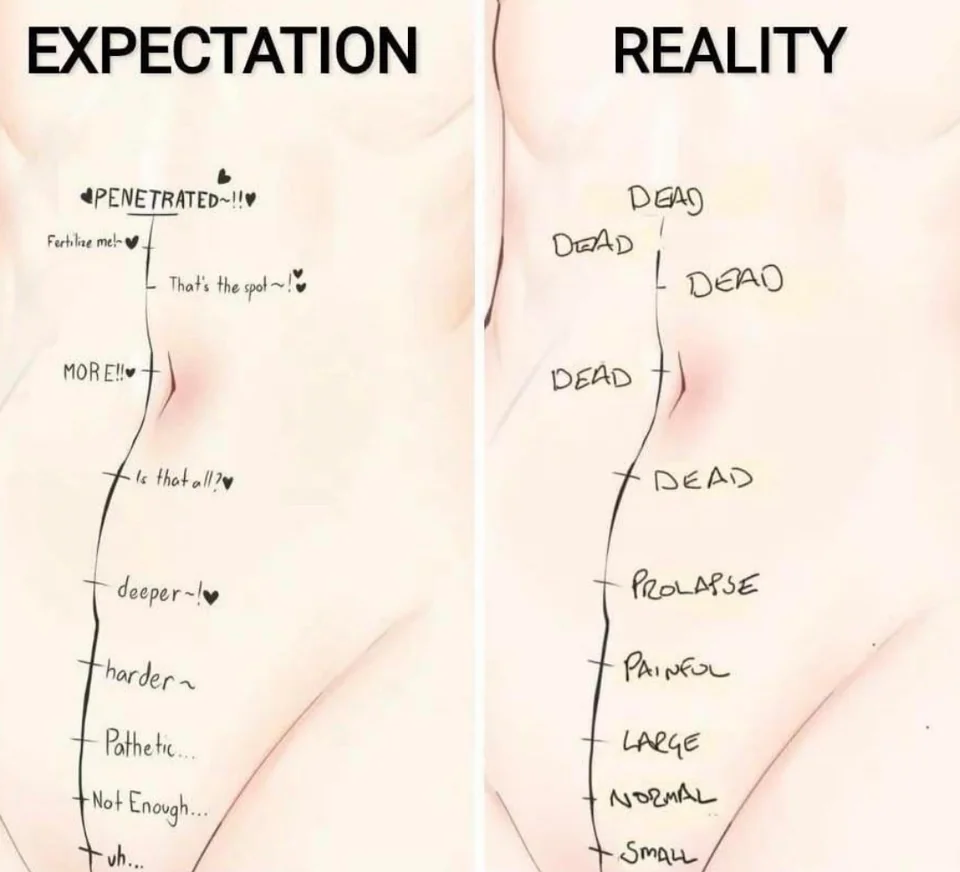 EXPECTATION
♥PENETRATED~!!♥
Fertilize me!~♥
That's the spot~!♥
MORE!!♥
Is that all?♥
deeper~!♥
harder~
Pathetic...
Not Enough...
uh...
REALITY
DEAD
DEAD
DEAD
DEAD
DEAD
PROLAPSE
PAINFUL
LARGE
NORMAL
SMALL